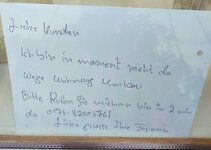 Liebe Kunden
Ich bin in moment nicht da
Wege Wohnung Umbau
Bitte Rufen Sie mich an bin in 2 min
da 0176-82003761
Liebe grusse Ihre